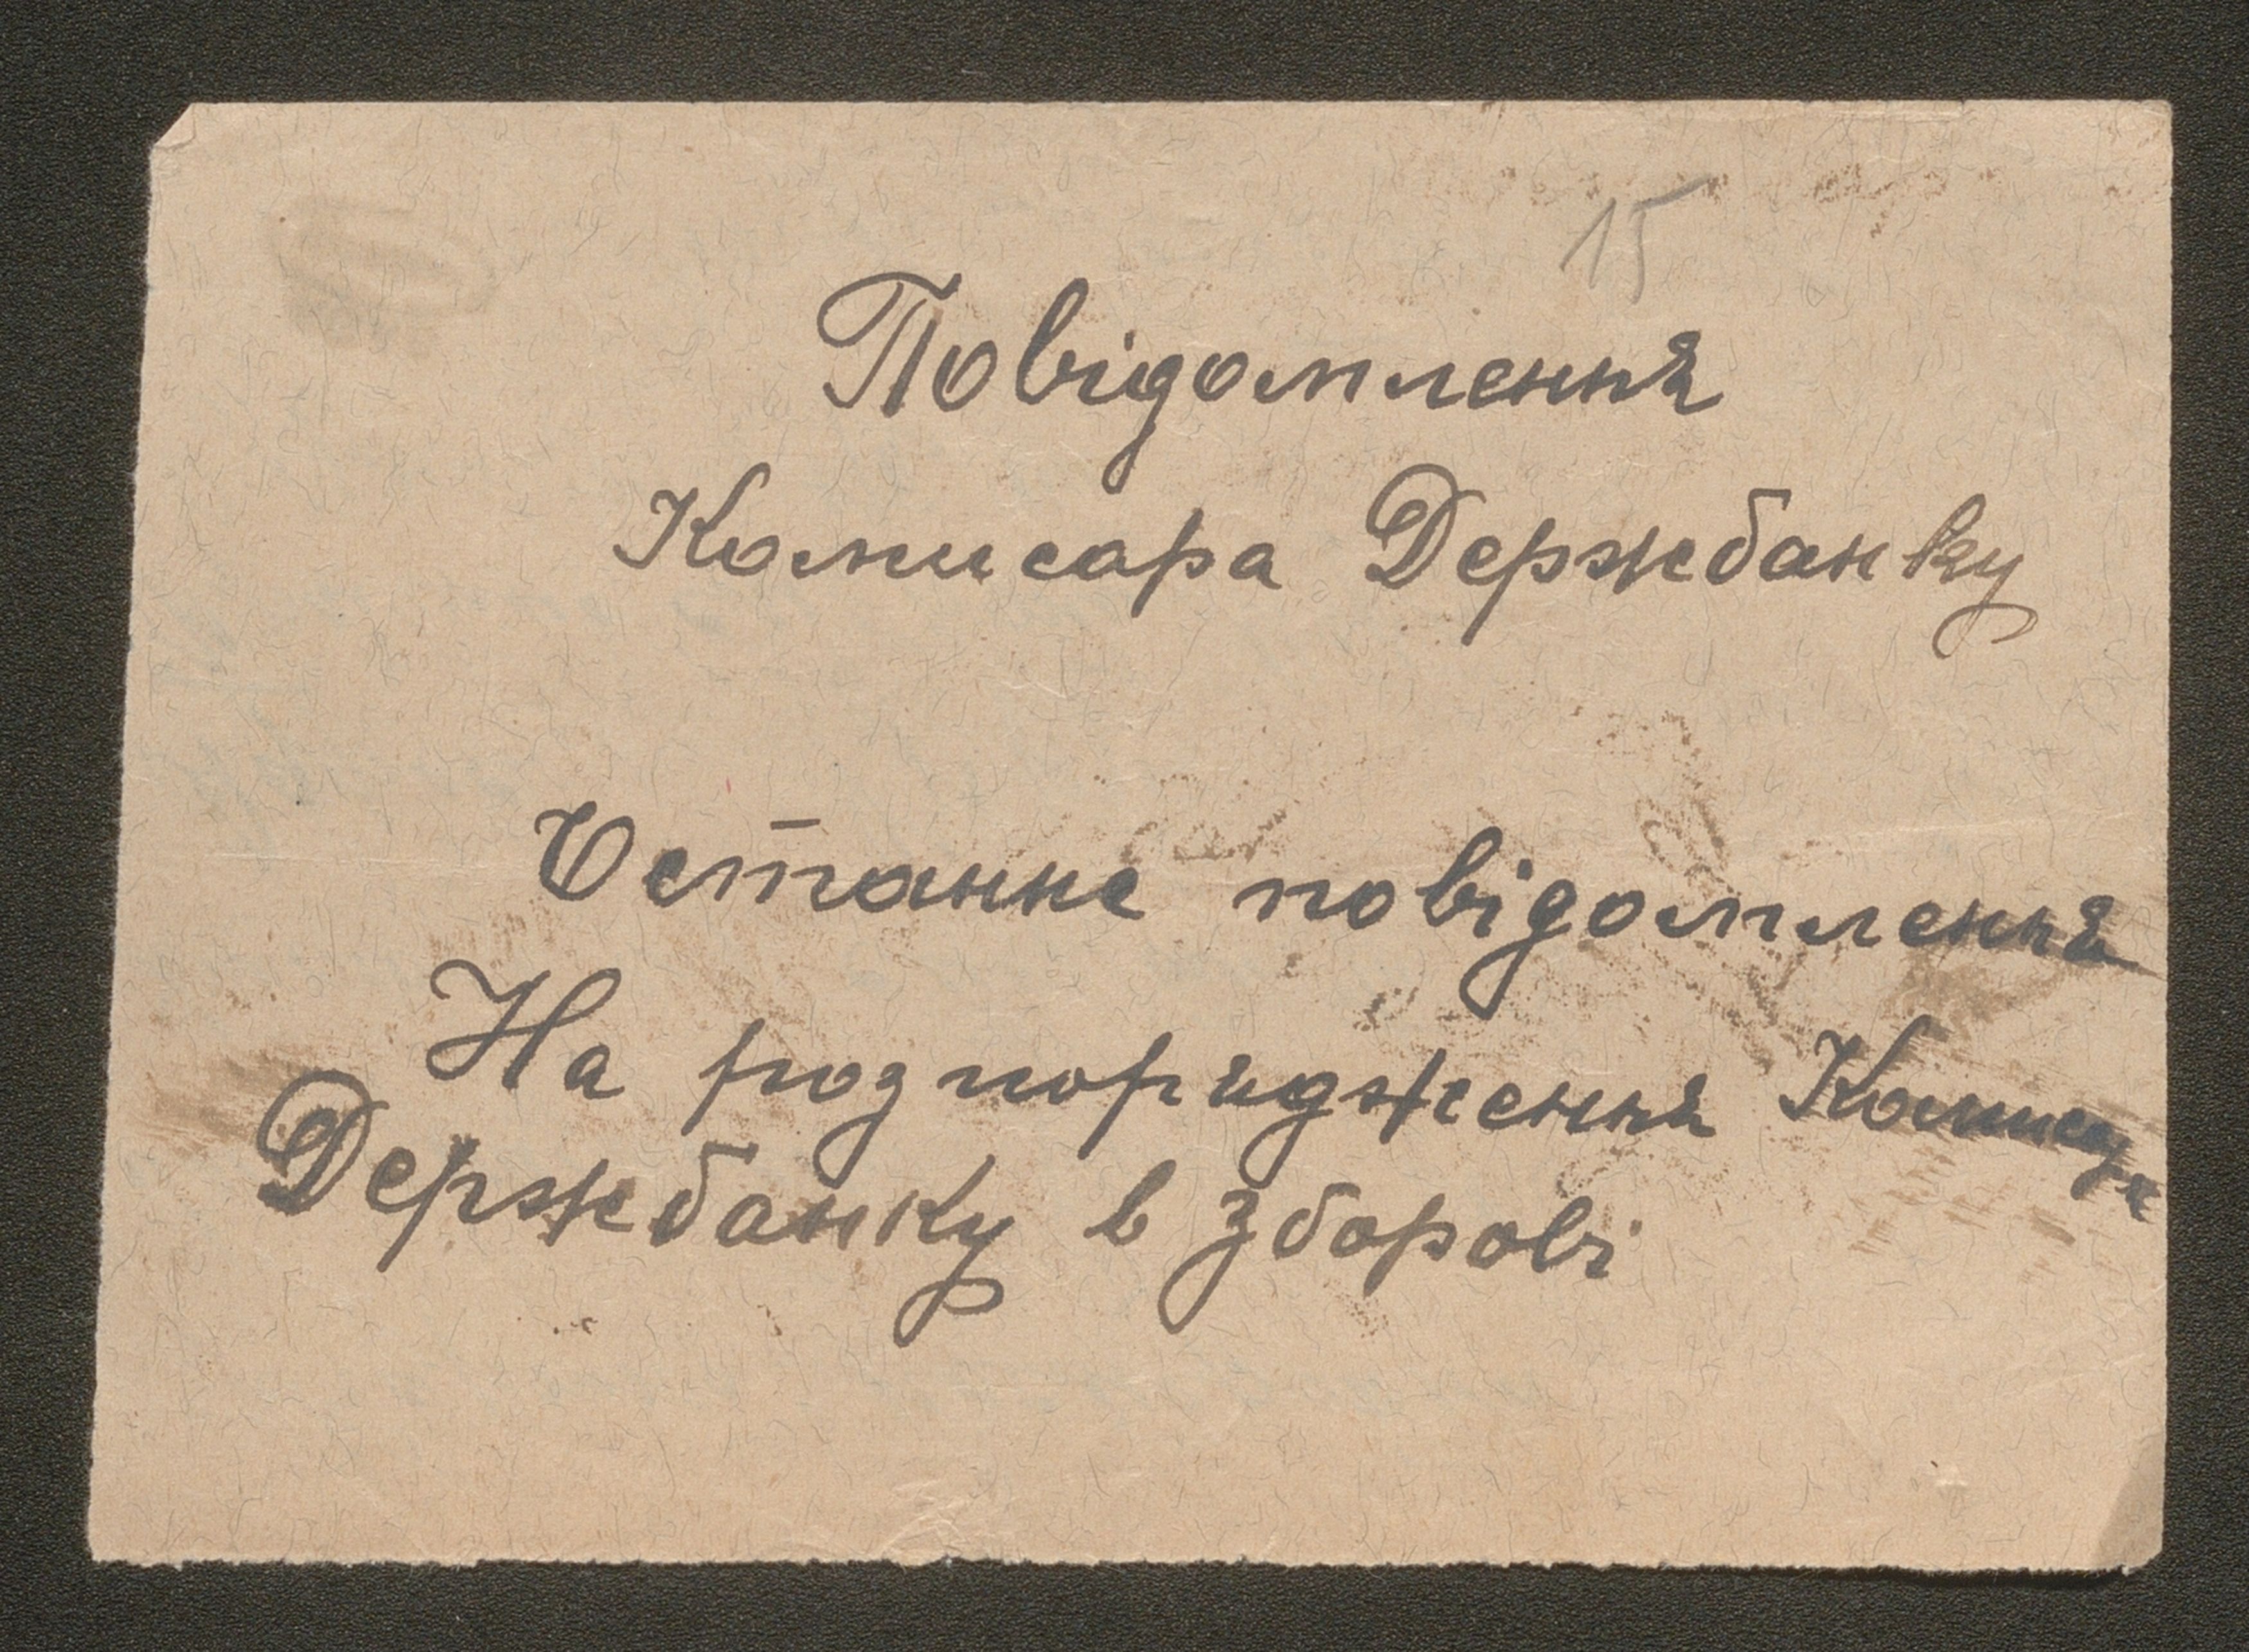 15
Повідомлення
Комисара Держбанку
Останнє повідомлення
На розпорядження Комисара
Держбанку в Зборові